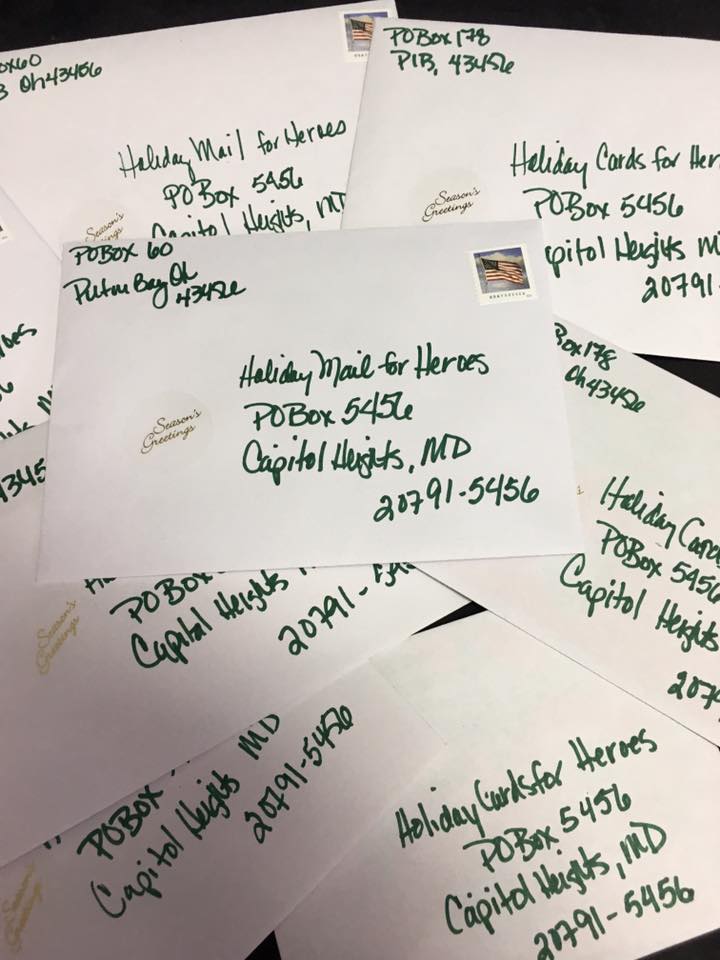 Ox60
B Oh 43456
Holiday Mail for Heroes
PO Box 5456
Capitol Heights, MD
Season's
PO Box 178
PIB, 43456
Holiday Cards for Her
PO Box 5456
apitol Heights M
20791-
Season's
Greetings
PO Box 60
Put in Bay Oh
43456
Holiday Mail for Heroes
PO Box 5456
Capitol Heights, MD
20791-5456
Season's
Greetings
Box 178
Oh 43456
Holiday Card
PO Box 5456
Capitol Heights
2079
4345
PO Box
Capitol Heights
20791-
Season's
Greetings
PO Box
Capitol Heights MD
20791-5456
Holiday Cards for Heroes
PO Box 5456
Capitol Heights, MD
20791-5456